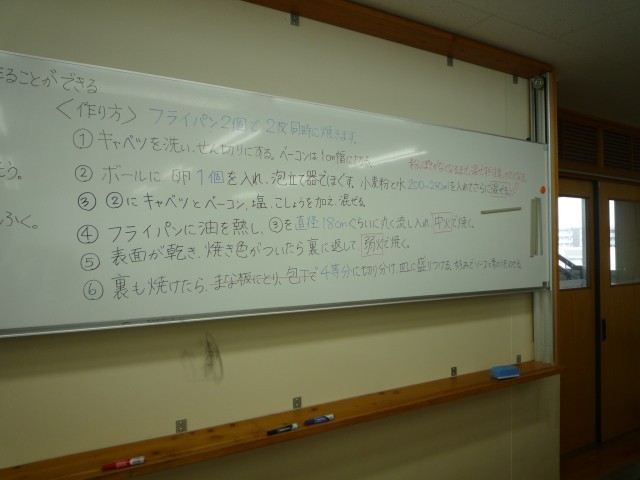 ることができる
<作り方> フライパン2個で2枚同時に焼きます。
① キャベツを洗い、せん切りにする。ベーコンは1cm幅に切る。
② ボールに卵1個を入れ、泡立て器でほぐす。小麦粉と水200~250mlを入れてさらに混ぜる。
③ ②にキャベツとベーコン、塩、こしょうを加え、混ぜる。
④ フライパンに油を熱し、③を直径18cmぐらいに丸く流し入れ、中火で焼く。
⑤ 表面が乾き、焼き色がついたら裏に返して弱火で焼く。
⑥ 裏も焼けたら、まな板にとり、包丁で4等分に切り分け、皿に盛りつける。